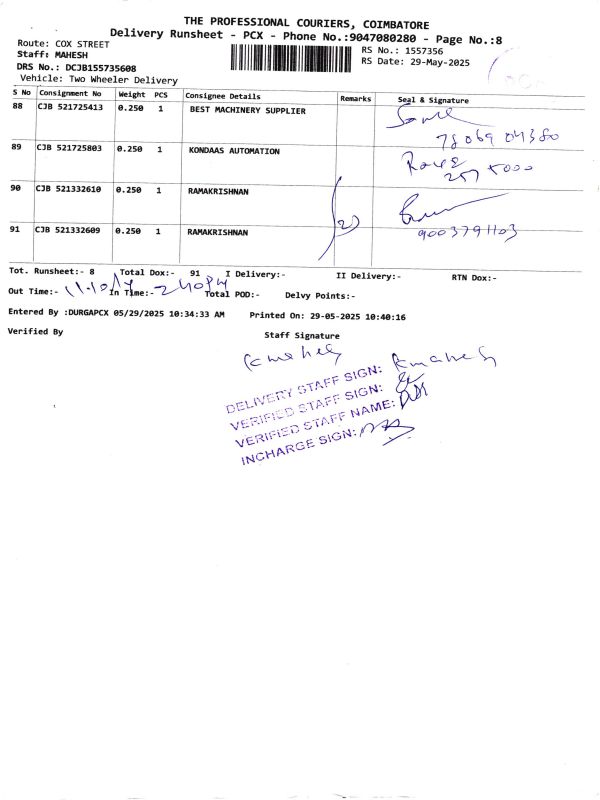 THE PROFESSIONAL COURIERS, COIMBATORE
Delivery Runsheet - PCX - Phone No.:9047080280 - Page No.:8
Route: COX STREET
Staff: MAHESH
DRS No.: DCJB155735608
Vehicle: Two Wheeler Delivery
RS No.: 1557356
RS Date: 29-May-2025
S No Consignment No Weight PCS Consignee Details Remarks Seal & Signature
88 CJB 521725413 0.250 1 BEST MACHINERY SUPPLIER
78069 04380
89 CJB 521725803 0.250 1 KONDAAS AUTOMATION
257 5000
90 CJB 521332610 0.250 1 RAMAKRISHNAN
91 CJB 521332609 0.250 1 RAMAKRISHNAN
9003791103
Tot. Runsheet:- 8 Total Dox:- 91 I Delivery:- II Delivery:- RTN Dox:-
Out Time:- In Time:- Total POD:- Delvy Points:-
Entered By :DURGAPCX 05/29/2025 10:34:33 AM Printed On: 29-05-2025 10:40:16
Verified By Staff Signature
DELIVERY STAFF SIGN:
VERIFIED STAFF SIGN:
VERIFIED STAFF NAME:
INCHARGE SIGN: